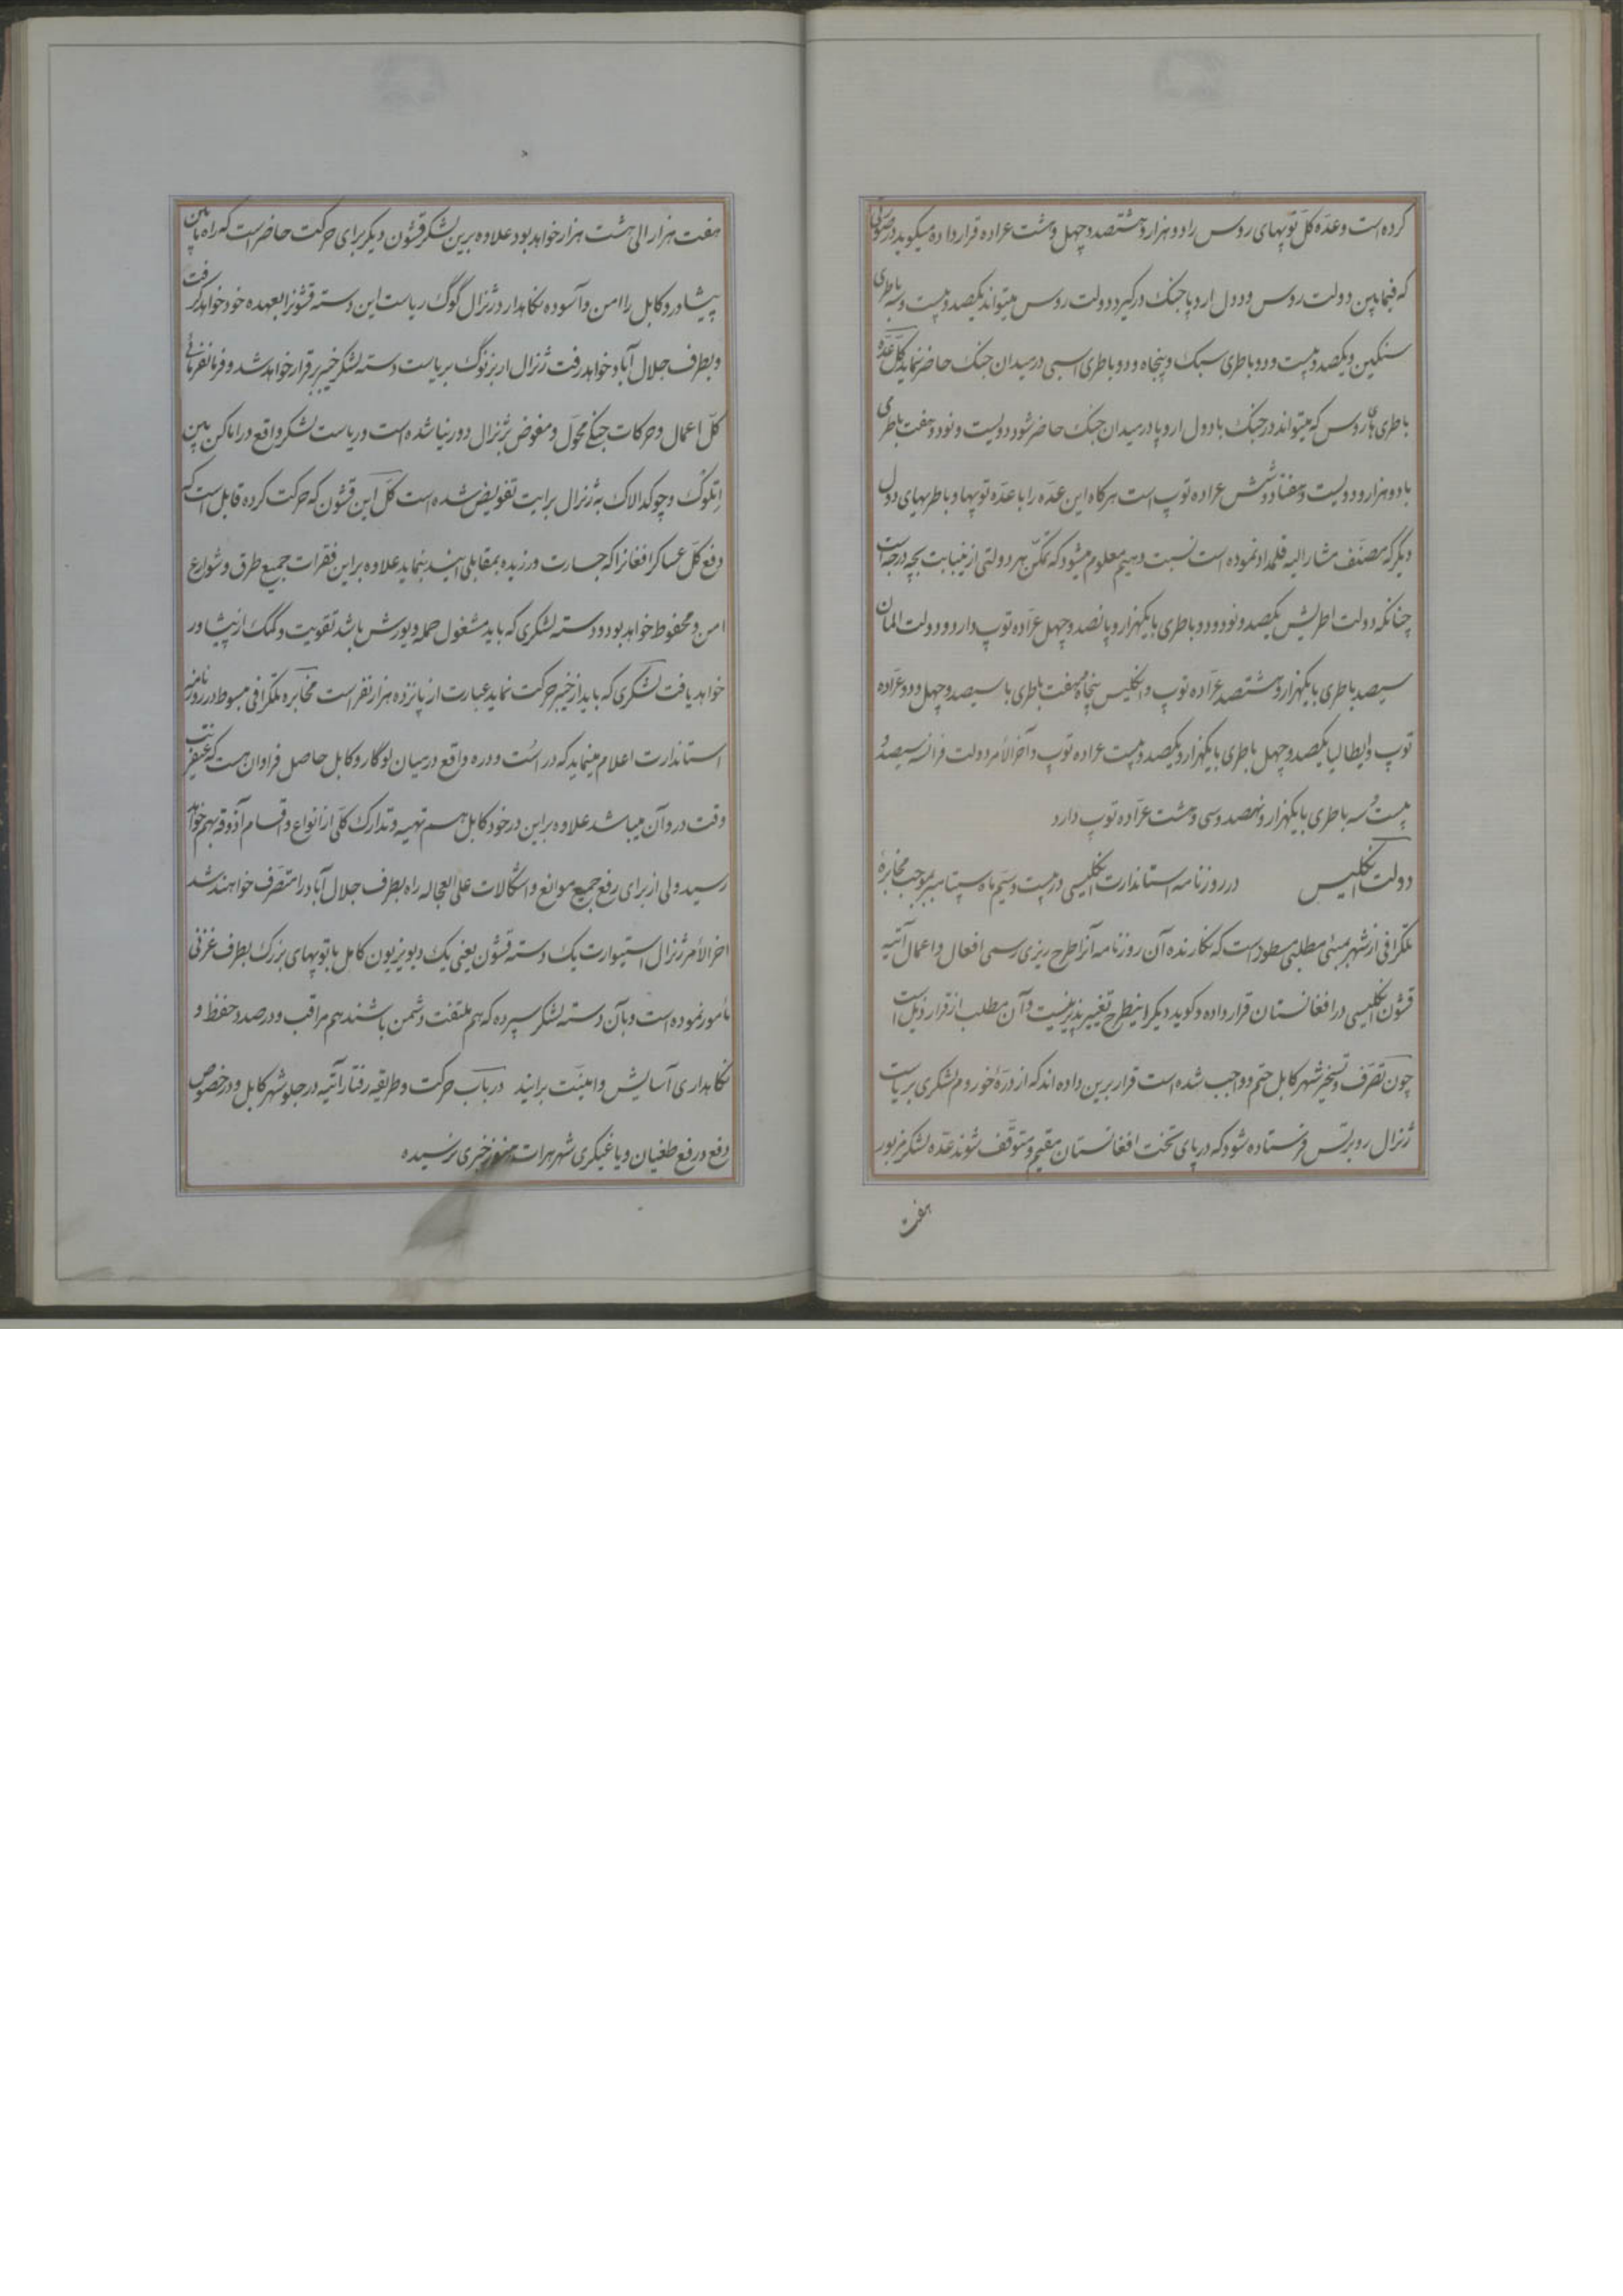 کرده است و عدّه کلّ توپهای روس را دو هزار و هشتصد و چهل و هشت عراده قرار داده میگوید در صورتی
که فیمابین دولت روس و دول اروپا جنک درگیرد دولت روس میتواند یکصد و بیست و سه باطری
سنکین و یکصد و بیست و دو باطری سبک و پنجاه و دو باطری اسبی در میدان جنک حاضر نماید کلّ عدّه
باطری های روس که میتواند در جنک با دول اروپا در میدان جنک حاضر شود دویست و نود و هفت باطری
با دو هزار و دویست و هفتاد و شش عراده توپ است هرکاه این عدّه را با عدّه توپها و باطریهای دول
دیکر که مصنّف مشارالیه قلمداد نموده است نسبت دهیم معلوم میشود که تمکّن هر دولتی ازینبابت بچه درجه است
چنانکه دولت اطریش یکصد و نود و دو باطری با یکهزار و پانصد و چهل عرّاده توپ دارد و دولت المان
سیصد باطری با یکهزار و هشتصد عرّاده توپ و انکلیس پنجاه و هفت باطری با سیصد و چهل و دو عرّاده
توپ و ایطالیا یکصد و چهل باطری با یکهزار و یکصد و بیست عراده توپ و آخرالامر دولت فرانسه سیصد و
بیست و سه باطری با یکهزار و نهصد و سی و هشت عرّاده توپ دارد
دولت انکلیس در روزنامه استاندارت انکلیسی در بیست و سیّم ماه سپتامبر بموجب مخابرهٔ
تلکرافی از شهر بمبئی مطلبی مسطور است که نکارنده آن روزنامه آنرا طرح ریزی رسمی افعال و اعمال آتیه
قشون انکلیسی در افغانستان قرار داده و کوید دیکر اینطرح تغییر پذیر نیست و آن مطلب از قرار ذیل است
چون تصرّف و تسخیر شهر کابل حتم و واجب شده است قرار برین داده اند که از درّهٔ خوروم لشکری بریاست
ژنرال روبرتس فرستاده شود که در پای تخت افغانستان مقیم و متوقّف شوند عدّه لشکر مزبور
هفت
هفت هزار الی هشت هزار خواهد بود علاوه برین لشکر قشون دیکر برای حرکت حاضر است که راه مابین
پیشاور و کابل را امن و آسوده نکاهدارد ژنرال گوک ریاست این دسته قشونرا بعهده خود خواهد کرفت
و بطرف جلال آباد خواهد رفت ژنرال اربزنوک بریاست دسته لشکر خیبر برقرار خواهد شد و فرمانفرمائی
کلّ اعمال و حرکات جنکی محوّل و مفوّض بژنرال دورینا شده است و ریاست لشکر واقع در اماکن بین
اتلوک و چوکدالاک به ژنرال برایت تفویض شده است کلّ این قشون که حرکت کرده قابل است که
دفع کلّ عساکر افغانرا که جسارت ورزیده بمقابلی آیند بنماید علاوه براین فقرات جمیع طرق و شوارع
امن و محفوظ خواهد بود و دسته لشکری که باید مشغول حمله و یورش باشد تقویت و کمک از پیشاور
خواهد یافت لشکری که باید از خیبر حرکت نماید عبارت از پانزده هزار نفر است مخابره تلکرافی مبسوط در روزنامه
استاندارت اعلام مینماید که در دشت و دره واقع در میان لوگار و کابل حاصل فراوان هست که عنقریب
وقت درو آن میباشد علاوه براین در خود کابل هم تهیه و تدارک کلّی از انواع و اقسام آذوقه بهم خواهد
رسید ولی از برای رفع جمیع موانع و اشکالات علی العجاله راه بطرف جلال آباد را متصرّف خواهند شد
اخرالأمر ژنرال استیوارت یک دسته قشون یعنی یک دیویزیون کامل با توپهای بزرک بطرف غزنی
مأمور نموده است و بآن دسته لشکر سپرده که هم ملتفت دشمن باشند هم مراقب و درصدد حفظ و
نکاهداری آسایش و امنیّت برآیند در باب حرکت و طریقه رفتار آتیه در جلو شهر کابل و در خصوص
دفع و رفع طغیان و یاغیکری شهر هرات هنوز خبری نرسیده